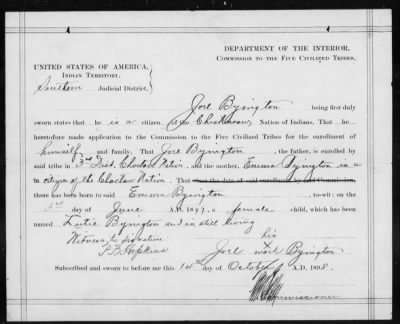 DEPARTMENT OF THE INTERIOR,
COMMISSION TO THE FIVE CIVILIZED TRIBES.
UNITED STATES OF AMERICA,
INDIAN TERRITORY,
Southern Judicial District.
Joel Byington being first duly
sworn states that he is a citizen of the Chickasaw Nation of Indians. That he
heretofore made application to the Commission to the Five Civilized Tribes for the enrollment of
himself and family. That Joel Byington, the father, is enrolled by
said tribe in 3rd Dist. Choctaw Nation, and the mother, Emma Byington is a
citizen of the Choctaw Nation. That
there has been born to said Emma Byington, to-wit: on the
3rd day of June A.D. 1897, a female child, which has been
named Byington and is still living
Witness to signature his
P.B. Hopkins Joel x mark Byington
Subscribed and sworn to before me this 14th day of October A.D. 1898.
Commissioner